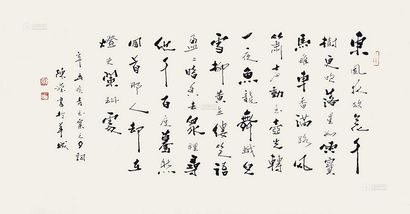 東風夜放花千
樹更吹落星如雨寶
馬雕車香滿路鳳
簫聲動玉壺光轉
一夜魚龍舞蛾兒
雪柳黃金縷笑語
盈盈暗香去衆裡尋
他千百度驀然
回首那人却在
燈火闌珊處
辛棄疾青玉案元夕詞
陳書於羊城